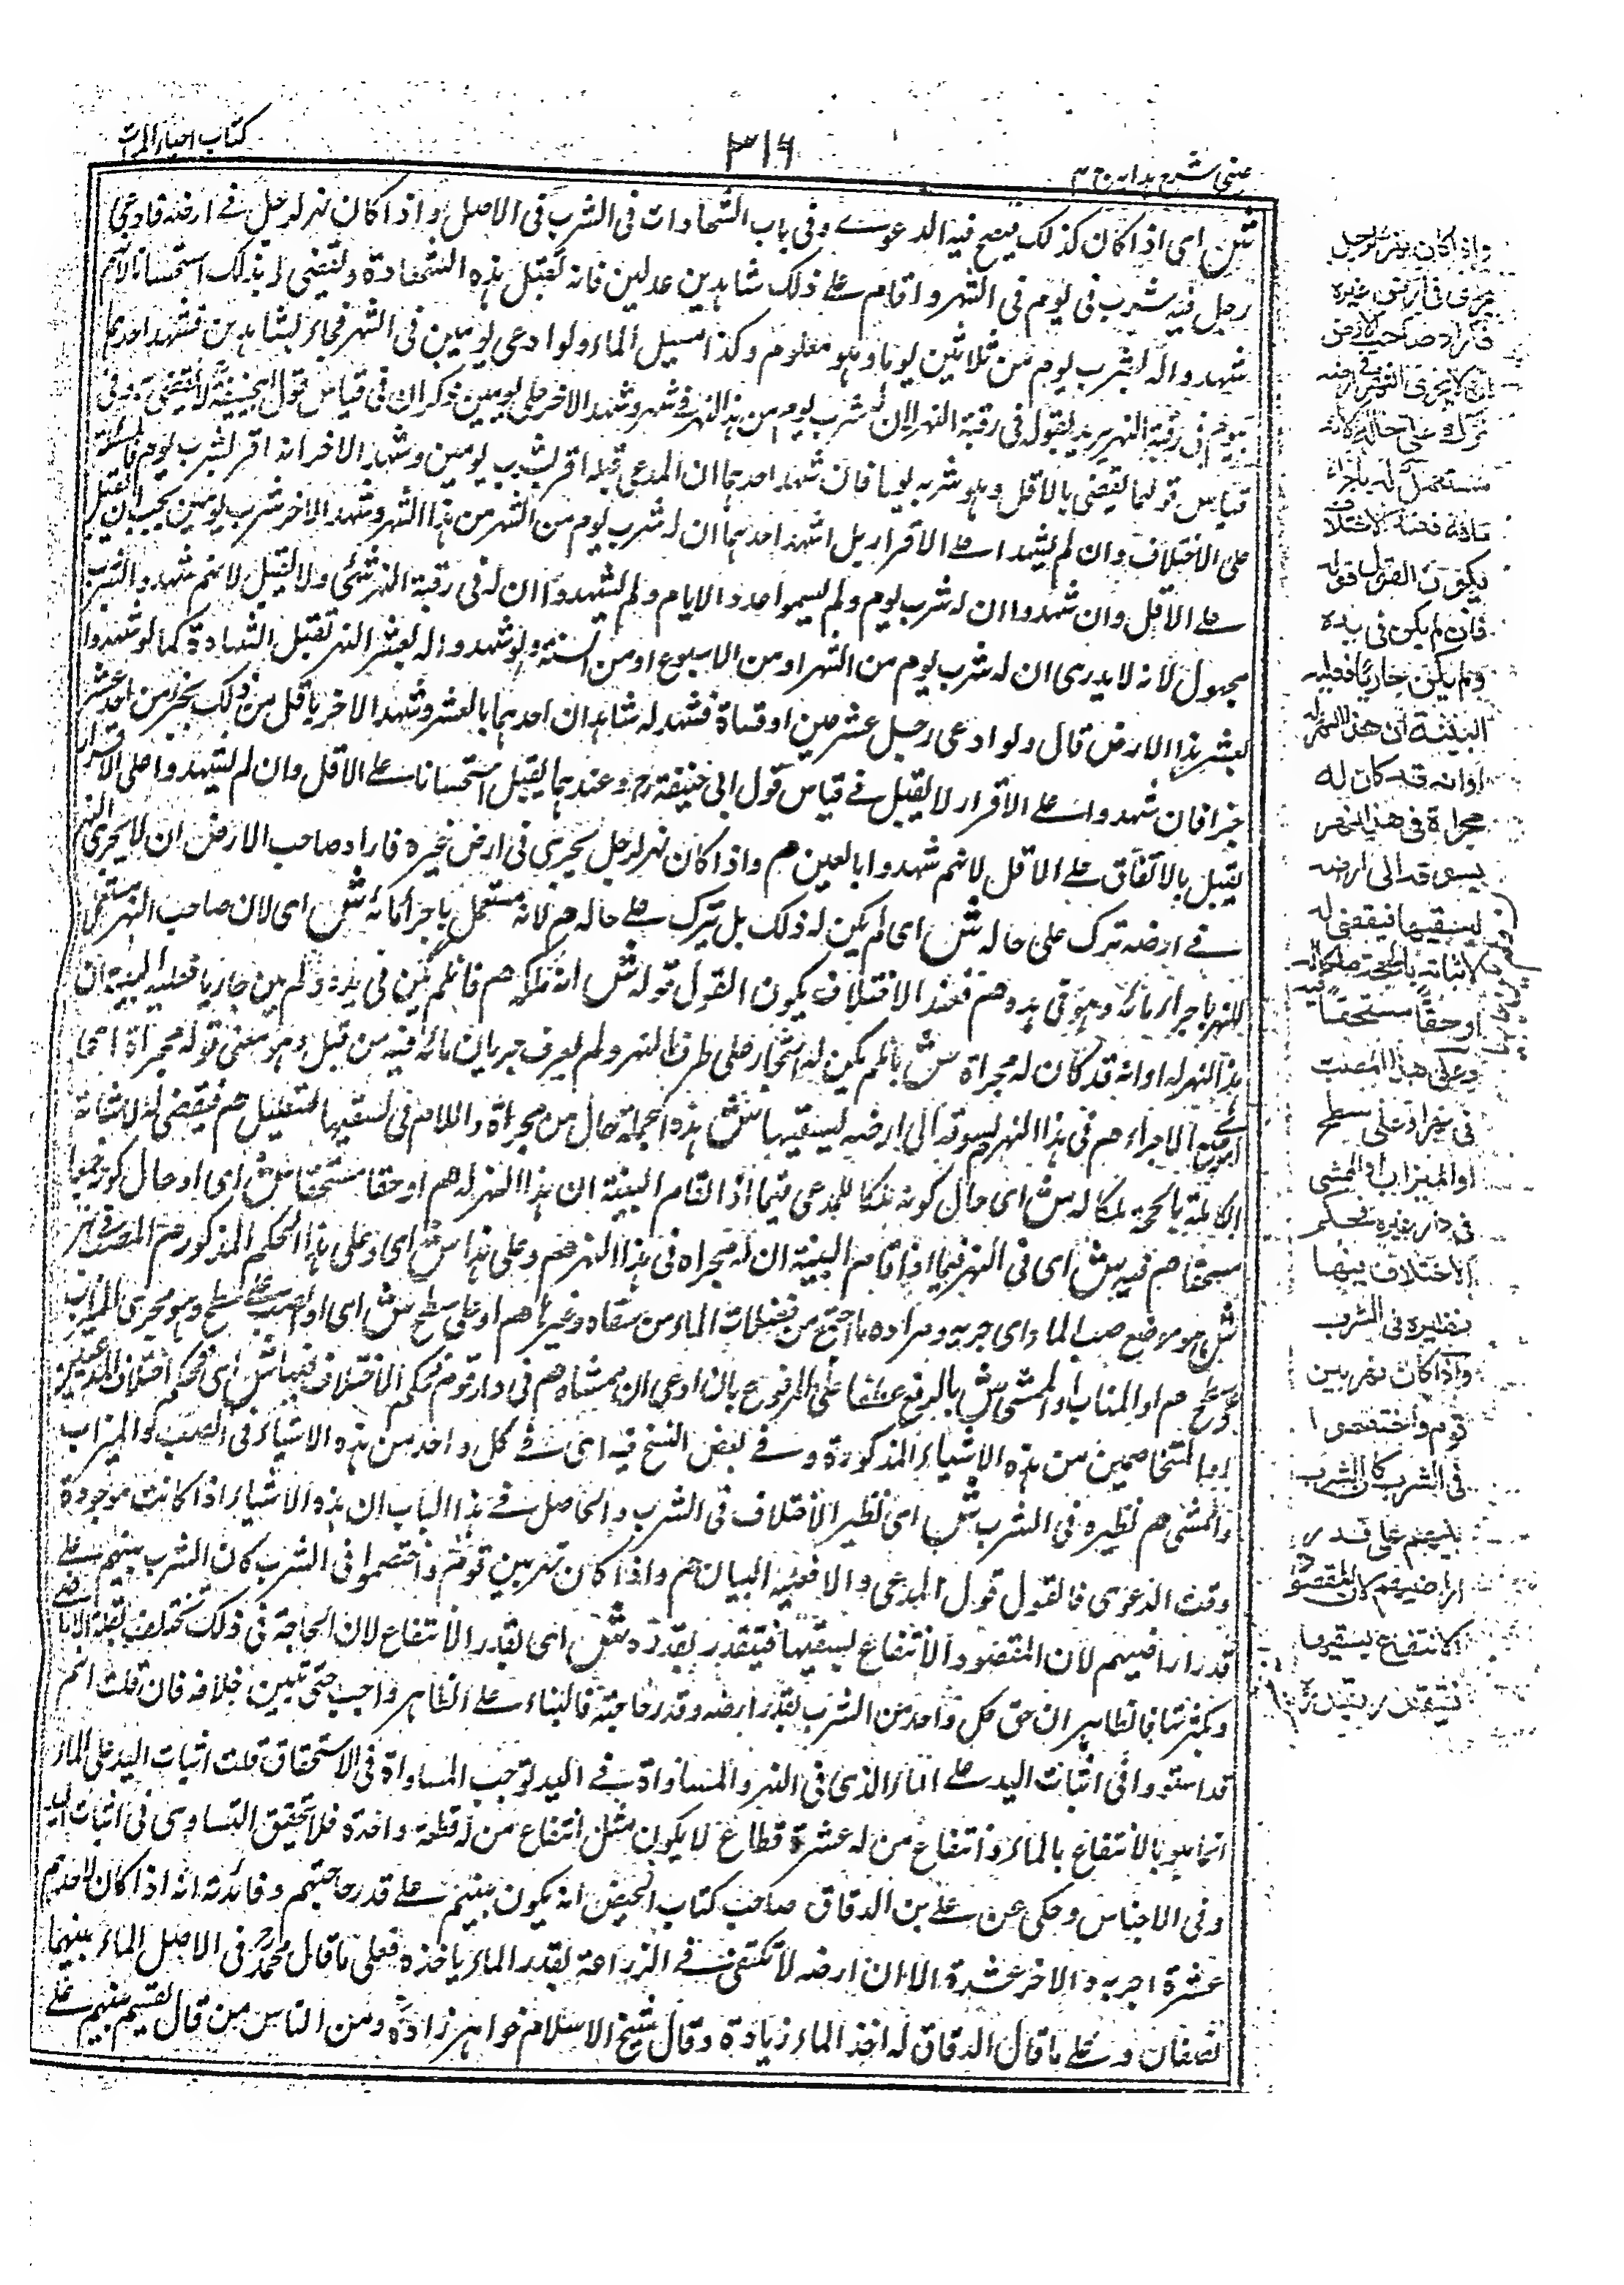 كتاب احياء الموات
٣١٦
عينى شرح هدايه ج ٣
ش اى اذا كان كذلك فيصح فيه الدعوى وفى باب الشهادات فى الشرب فى الاصل واذا كان نهر لرجل فى ارضه فادعى
رجل فيه شرب فى يوم فى الشهر واقام على ذلك شاهدين عدلين فانه تقبل هذه الشهادة وتقضى له بذلك استحسانا لانهم
شهدوا له بشرب يوم من ثلاثين يوما وهو معلوم وكذا مسيل الماء ولو ادعى يومين فى الشهر فجاء بشاهدين فشهد احدهما
بيوم فى رقبة النهر يريد بقوله فى رقبة النهر ان له شرب يوم من هذا النهر فى شهر وشهد الاخر على يومين ذكر ان فى قياس قول ابى حنيفة لا يقضى وفى
قياس قولهما يقضى بالاقل وهو شرب يوم فان شهد احدهما ان المدعى قبله اقر بشرب يومين وشهد الاخر انه اقر بشرب يوم
على الاختلاف وان لم يشهدا على الاقرار بل شهد احدهما ان له شرب يوم من الشهر من هذا النهر وشهد الاخر بشرب يومين يجب ان يقبل
على الاقل وان شهدوا ان له شرب يوم ولم يسموا عدد الايام ولم يشهدوا ان له فى رقبة النهر شئ ولا تقبل لانهم شهدوا بشرب
مجهول لانه لا يدرى ان له شرب يوم من الشهر او من الاسبوع او من السنة ولو شهدوا له بعشر النهر تقبل الشهادة كما لو شهدوا
بعشر هذا الارض قال ولو ادعى رجل عشر عين او قناة فشهد له شاهدان احدهما بالعشر وشهد الاخر باقل من ذلك بجزء من احد عشر
جزءا فان شهدوا على الاقرار لا يقبل فى قياس قول ابى حنيفة رح وعندهما يقبل استحسانا على الاقل وان لم يشهدوا على الاقرار
يقبل بالاتفاق على الاقل لانهم شهدوا بالعين هم واذا كان نهر لرجل يجرى فى ارض غيره فاراد صاحب الارض ان لا يجرى النهر
فى ارضه ترك على حاله ش اى لم يكن له ذلك بل يترك على حاله هم لانه مستعمل باجراء مائه ش اى لان صاحب النهر مستعمل
للنهر باجراء مائه وهو فى يده هم فعند الاختلاف يكون القول قوله ش انه ملكه هم فان لم يكن فى يده ولم يكن جاريا فعليه البينة ان
هذا النهر له او انه قد كان له مجراة ش بان لم يكن له اشجار على طرف النهر ولم يعرف جريان مائه فيه من قبل وهو معنى قوله مجراة اى
موضع الاجراء هم فى هذا النهر يسوقه الى ارضه ليسقيها ش هذه الجملة حال من مجراة واللام فى ليسقيها للتعليل هم فيقضى له لاثباته
بالحجة ملكا له ش اى حال كونه ملكا للمدعى فيما اذا اقام البينة ان هذا النهر له هم او حقا مستحقا ش اى او حال كونه حقا
مستحقا هم فيه ش اى فى النهر فيما اذا اقام البينة ان له مجراه فى هذا النهر هم وعلى هذا ش اى وعلى هذا الحكم المذكور هم المصب فى نهر
ش هو موضع صب الماء اى جريه ومراده ما اجتمع من فضلات الماء من سقاه وغيرها هم او على سطح ش اى او المصب على سطح وهو مجرى الميزاب
سطح هم او الميزاب او الممشى ش بالرفع عطفا على المرفوع بان ادعى ان ممشاه هم فى دار قوم فحكم الاختلاف فيها ش اى فحكم اختلاف المدعيين
او المتخاصمين من هذه الاشياء المذكورة وفى بعض النسخ فيه اى فى كل واحد من هذه الاشياء فى المصب والميزاب
والممشى هم نظيره فى الشرب ش اى نظير الاختلاف فى الشرب والحاصل فى هذا الباب ان هذه الاشياء اذا كانت موجودة
وقت الدعوى فالقول قول المدعى والا فعليه البيان هم واذا كان نهر بين قوم واختصموا فى الشرب كان الشرب بينهم على
قدر اراضيهم لان المقصود الانتفاع بسقيها فيتقدر بقدره ش اى بقدر الانتفاع لان الحاجة فى ذلك تختلف بقلة الاراضى
وكثرتها فالظاهر ان حق كل واحد من الشرب بقدر ارضه وقدر حاجته فالبناء على الظاهر واجب حتى تبين خلافه فان قلت انهم
قد استووا فى اثبات اليد على الماء الذى فى النهر والمساواة فى اليد توجب المساواة فى الاستحقاق قلت اثبات اليد على الماء
انما هو بالانتفاع بالماء وانتفاع من له عشرة قطاع لا يكون مثل انتفاع من له قطعة واحدة فلا تحقق التساوى فى اثبات اليد
وفى الاجناس وحكى عن على بن الدقاق صاحب كتاب الحيض انه يكون بينهم على قدر حاجتهم وفائدته انه اذا كان لاحدهم
عشرة اجربة والاخر عشرة الا ان ارضه لا تكتفى فى الزراعة بقدر الماء ياخذه فعلى ما قال محمد رح فى الاصل الماء بينهما
نصفان وعلى ما قال الدقاق له اخذ الماء زيادة وقال شيخ الاسلام خواهر زاده ومن الناس من قال يقسم بينهم على
واذا كان نهر لرجل
يجرى فى ارض غيره
فاراد صاحب الارض
ان لا يجرى النهر فى ارضه
ترك على حاله لانه
مستعمل له باجراء
مائه فعند الاختلاف
يكون القول قوله
فان لم يكن فى يده
ولم يكن جاريا فعليه
البينة ان هذا النهر له
او انه قد كان له
مجراة فى هذا النهر
يسوقه الى ارضه
ليسقيها فيقضى له
لاثباته بالحجة ملكا له
او حقا مستحقا فيه
وعلى هذا المصب
فى نهر او على سطح
او الميزاب او الممشى
فى دار غيره فحكم
الاختلاف فيها
نظيره فى الشرب
واذا كان نهر بين
قوم واختصموا
فى الشرب كان الشرب
بينهم على قدر
اراضيهم لان المقصود
الانتفاع بسقيها
فيتقدر بقدره